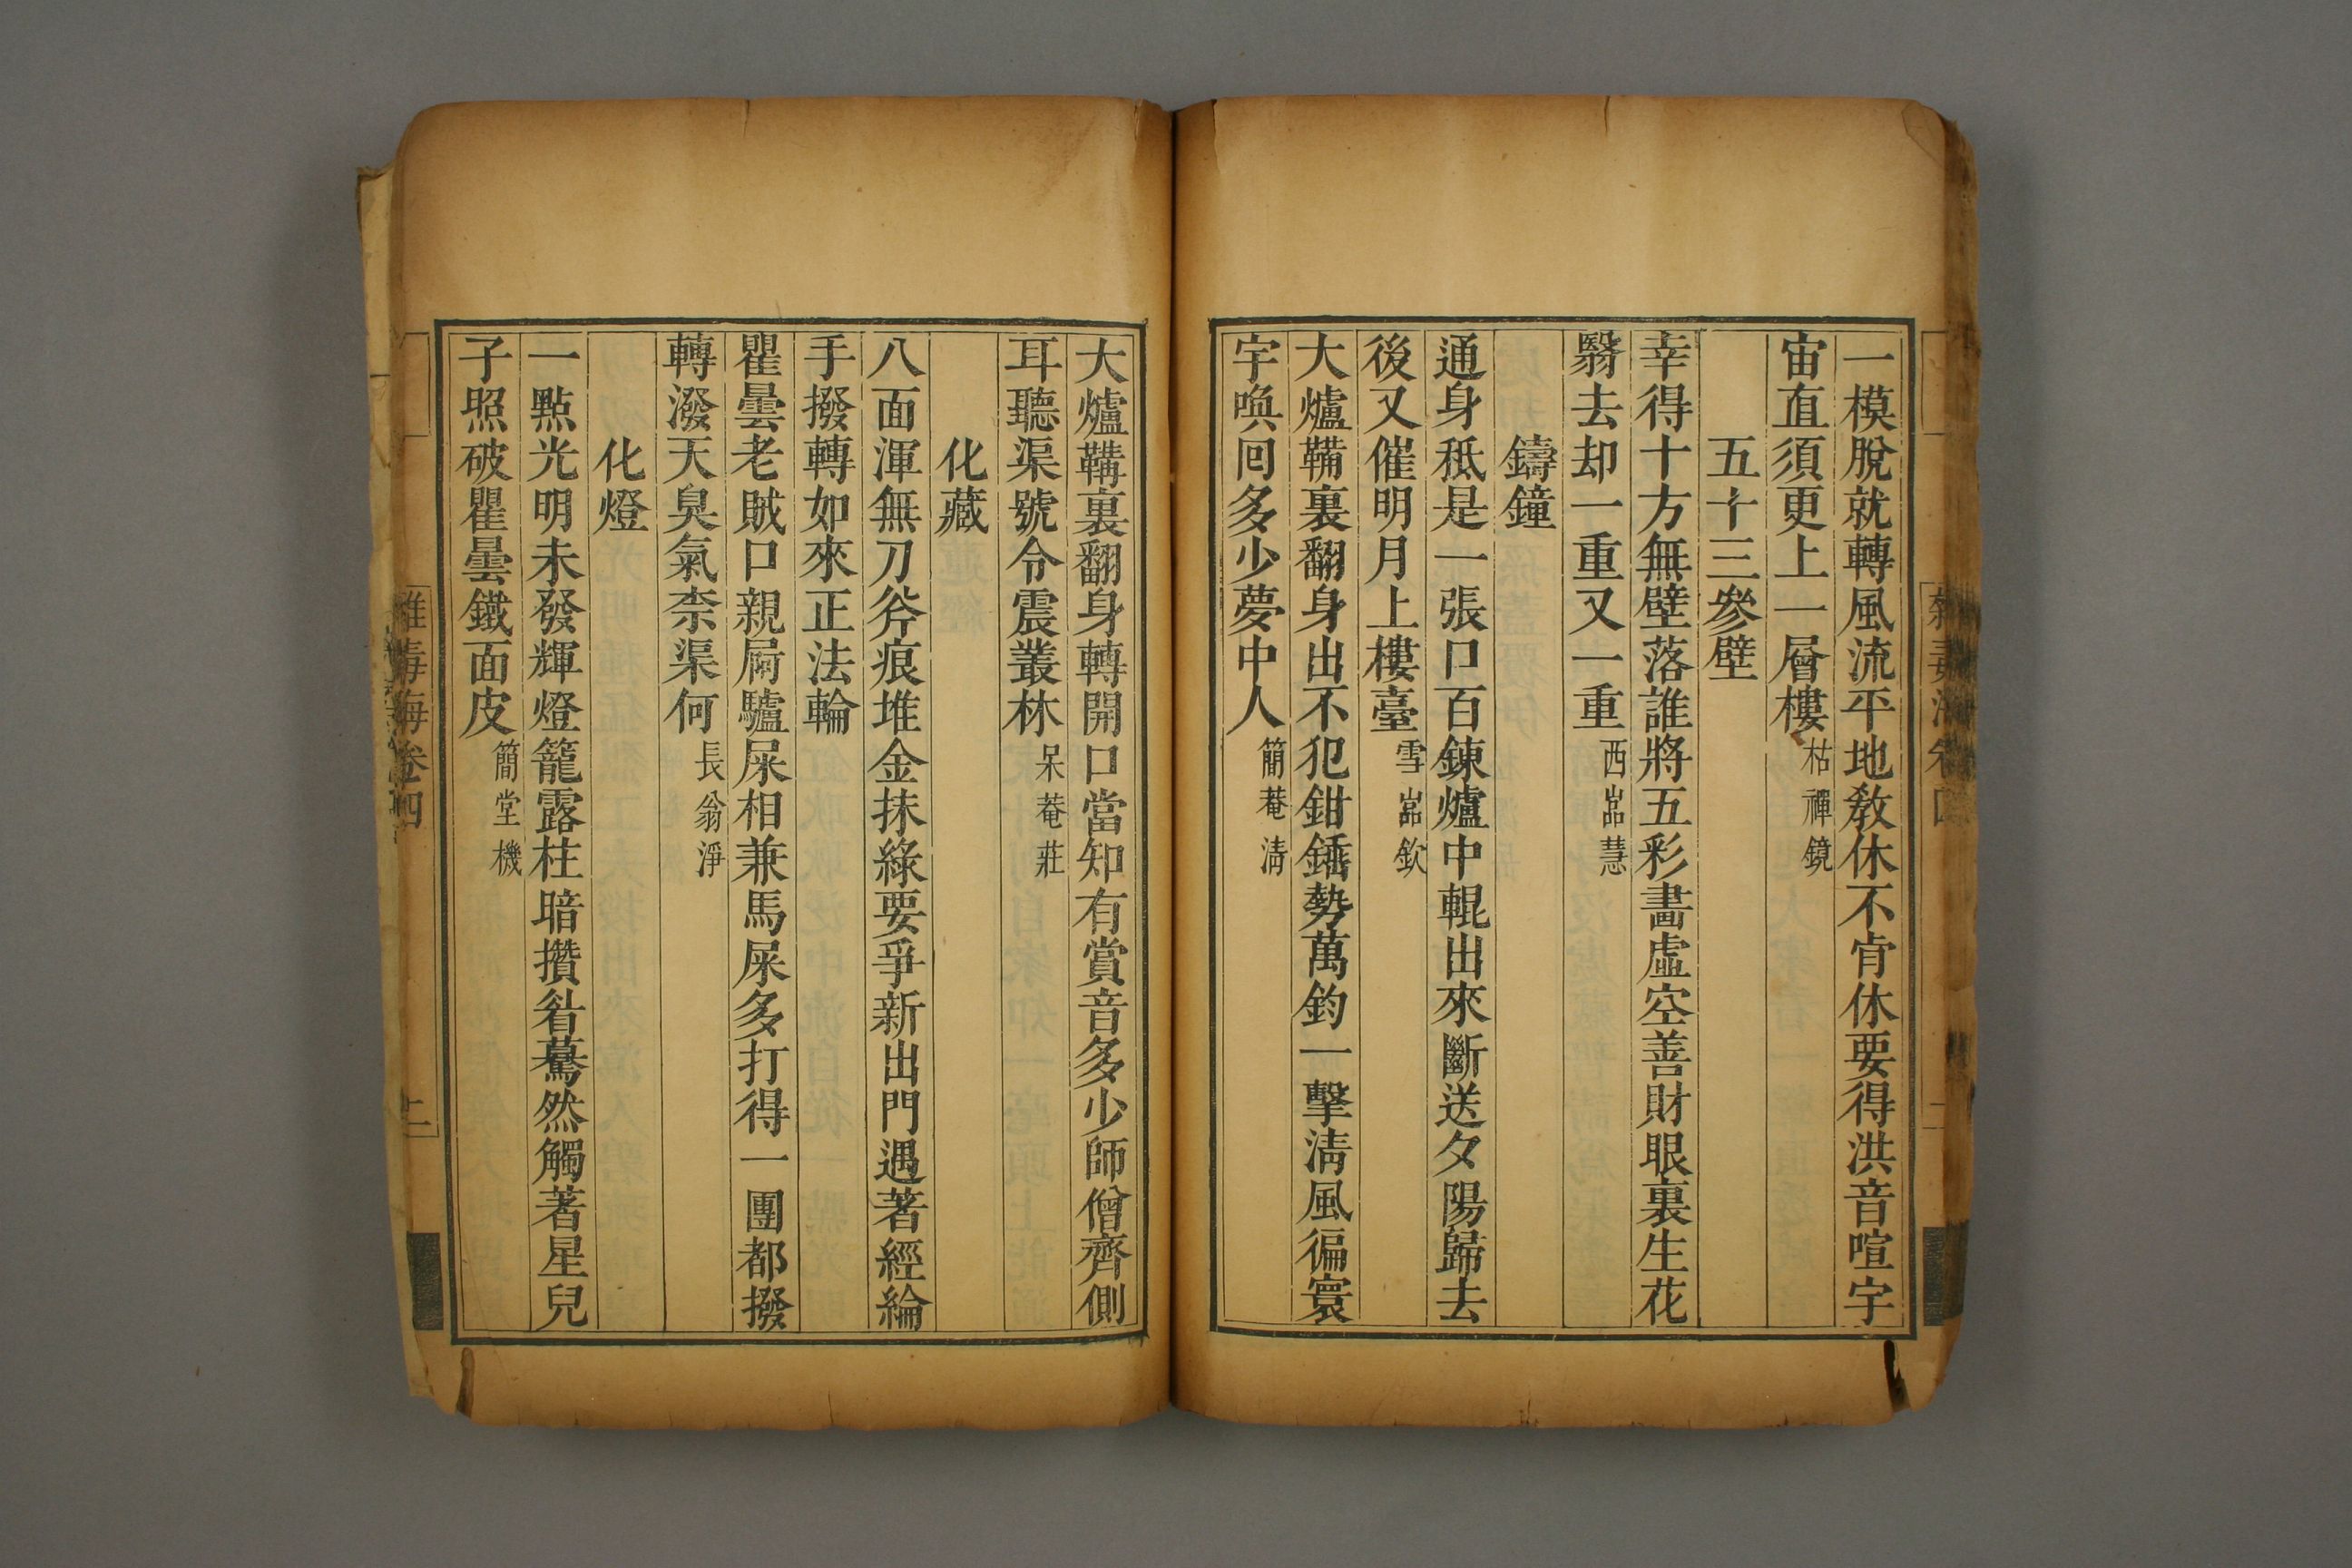 一模脫就轉風流平地教休不肯休要得洪音喧宇
宙直須更上一層樓枯禪鏡
五十三參壁
幸得十方無壁落誰將五彩畵虛空善財眼裏生花
翳去却一重又一重西嵓慧
鑄鐘
通身秖是一張口百鍊爐中輥出來斷送夕陽歸去
後又催明月上樓臺雪嵓欽
大爐鞴裏翻身出不犯鉗錘勢萬鈞一擊淸風徧寰
宇喚回多少夢中人簡菴淸
大爐鞴裏翻身轉開口當知有賞音多少師僧齊側
耳聽渠號令震叢林呆菴莊
化藏
八面渾無刀斧痕堆金抹綠要爭新出門遇著經綸
手撥轉如來正法輪
瞿曇老賊口親屙驢屎相兼馬屎多打得一團都撥
轉潑天臭氣柰渠何長翁淨
化燈
一點光明未發輝燈籠露柱暗攢眉驀然觸著星兒
子照破瞿曇鐵面皮簡堂機
雜毒海卷四
二